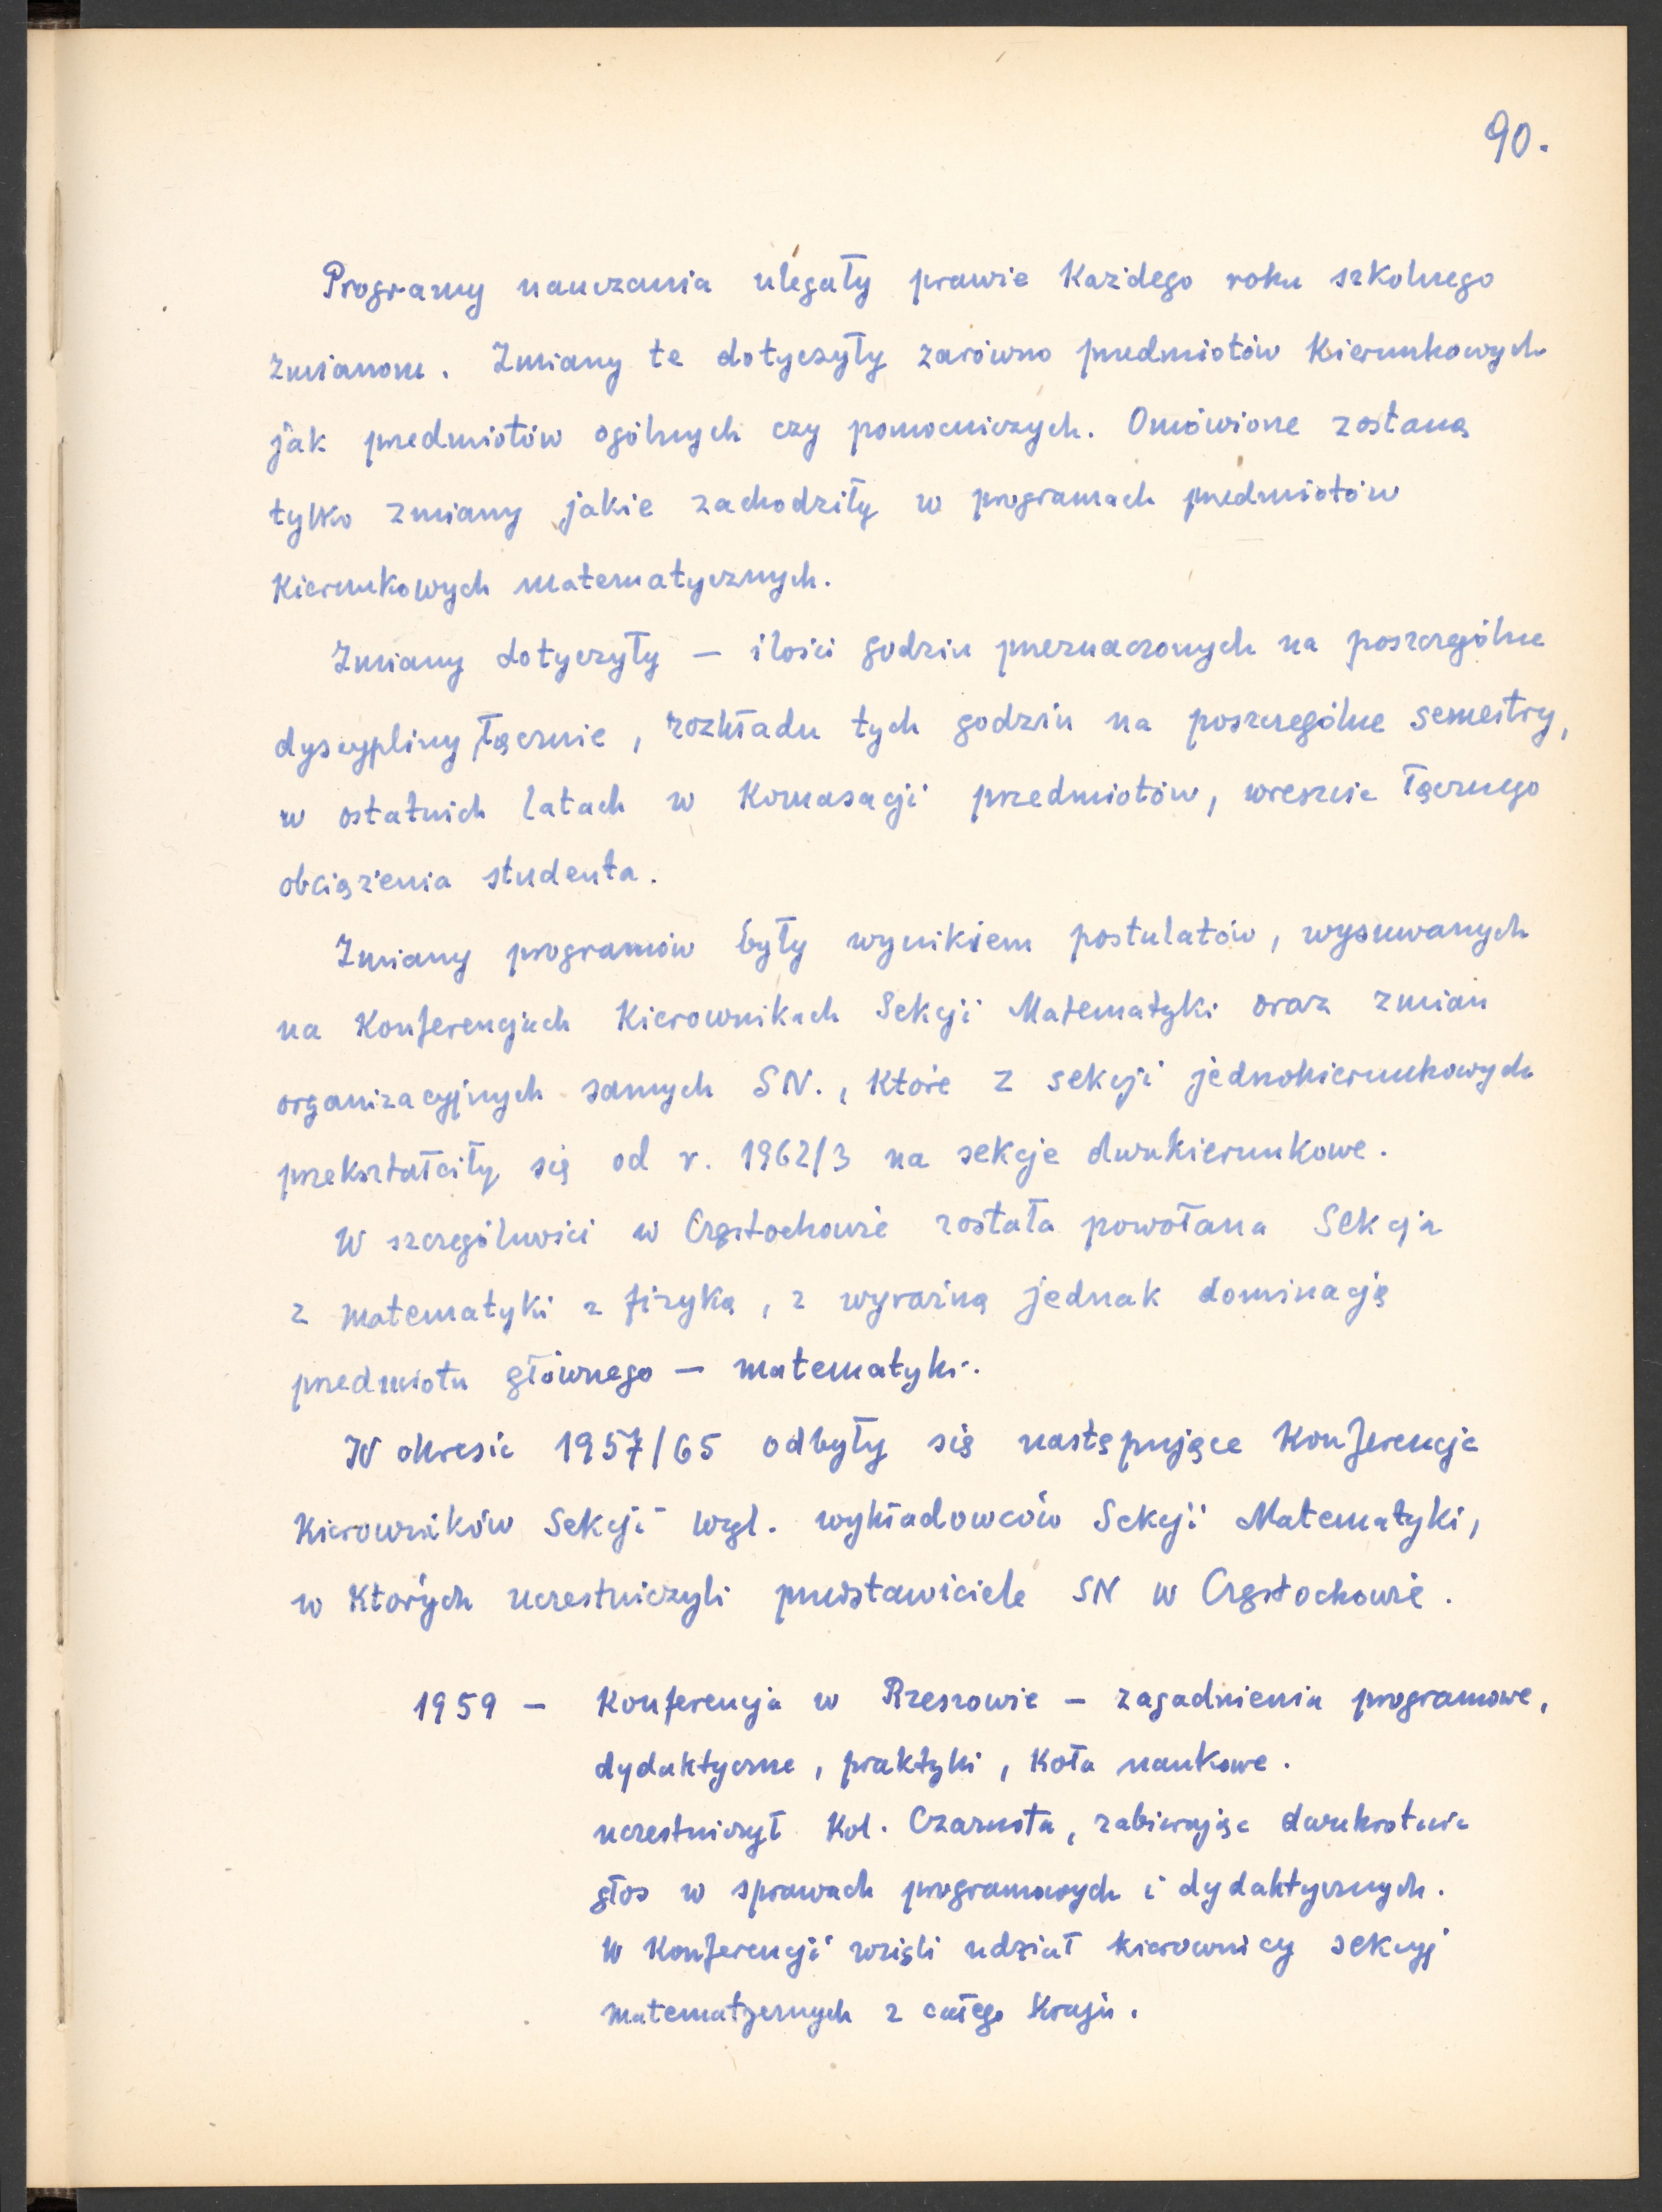 90.
Programy nauczania ulegały prawie każdego roku szkolnego
zmianom. Zmiany te dotyczyły zarówno przedmiotów kierunkowych
jak przedmiotów ogólnych czy pomocniczych. Omówione zostaną
tylko zmiany jakie zachodziły w programach przedmiotów
kierunkowych matematycznych.
Zmiany dotyczyły — ilości godzin przeznaczonych na poszczególne
dyscypliny łącznie, rozkładu tych godzin na poszczególne semestry,
w ostatnich latach w komasacji przedmiotów, wreszcie łącznego
obciążenia studenta.
Zmiany programów były wynikiem postulatów, wysuwanych
na Konferencjach Kierownikach Sekcji Matematyki oraz zmian
organizacyjnych samych SN., które z sekcji jednokierunkowych
przekształciły się od r. 1962/3 na sekcje dwukierunkowe.
W szczególności w Częstochowie została powołana Sekcja
z matematyki z fizyką, z wyraźną jednak dominacją
przedmiotu głównego — matematyki.
W okresie 1957/65 odbyły się następujące Konferencje
Kierowników Sekcji wzgl. wykładowców Sekcji Matematyki,
w których uczestniczyli przedstawiciele SN w Częstochowie.
1959 — Konferencja w Rzeszowie — zagadnienia programowe,
dydaktyczne, praktyki, Koła naukowe.
uczestniczył Kol. Czarnota, zabierając dwukrotnie
głos w sprawach programowych i dydaktycznych.
W Konferencji wzięli udział kierownicy sekcyj
matematycznych z całego Kraju.